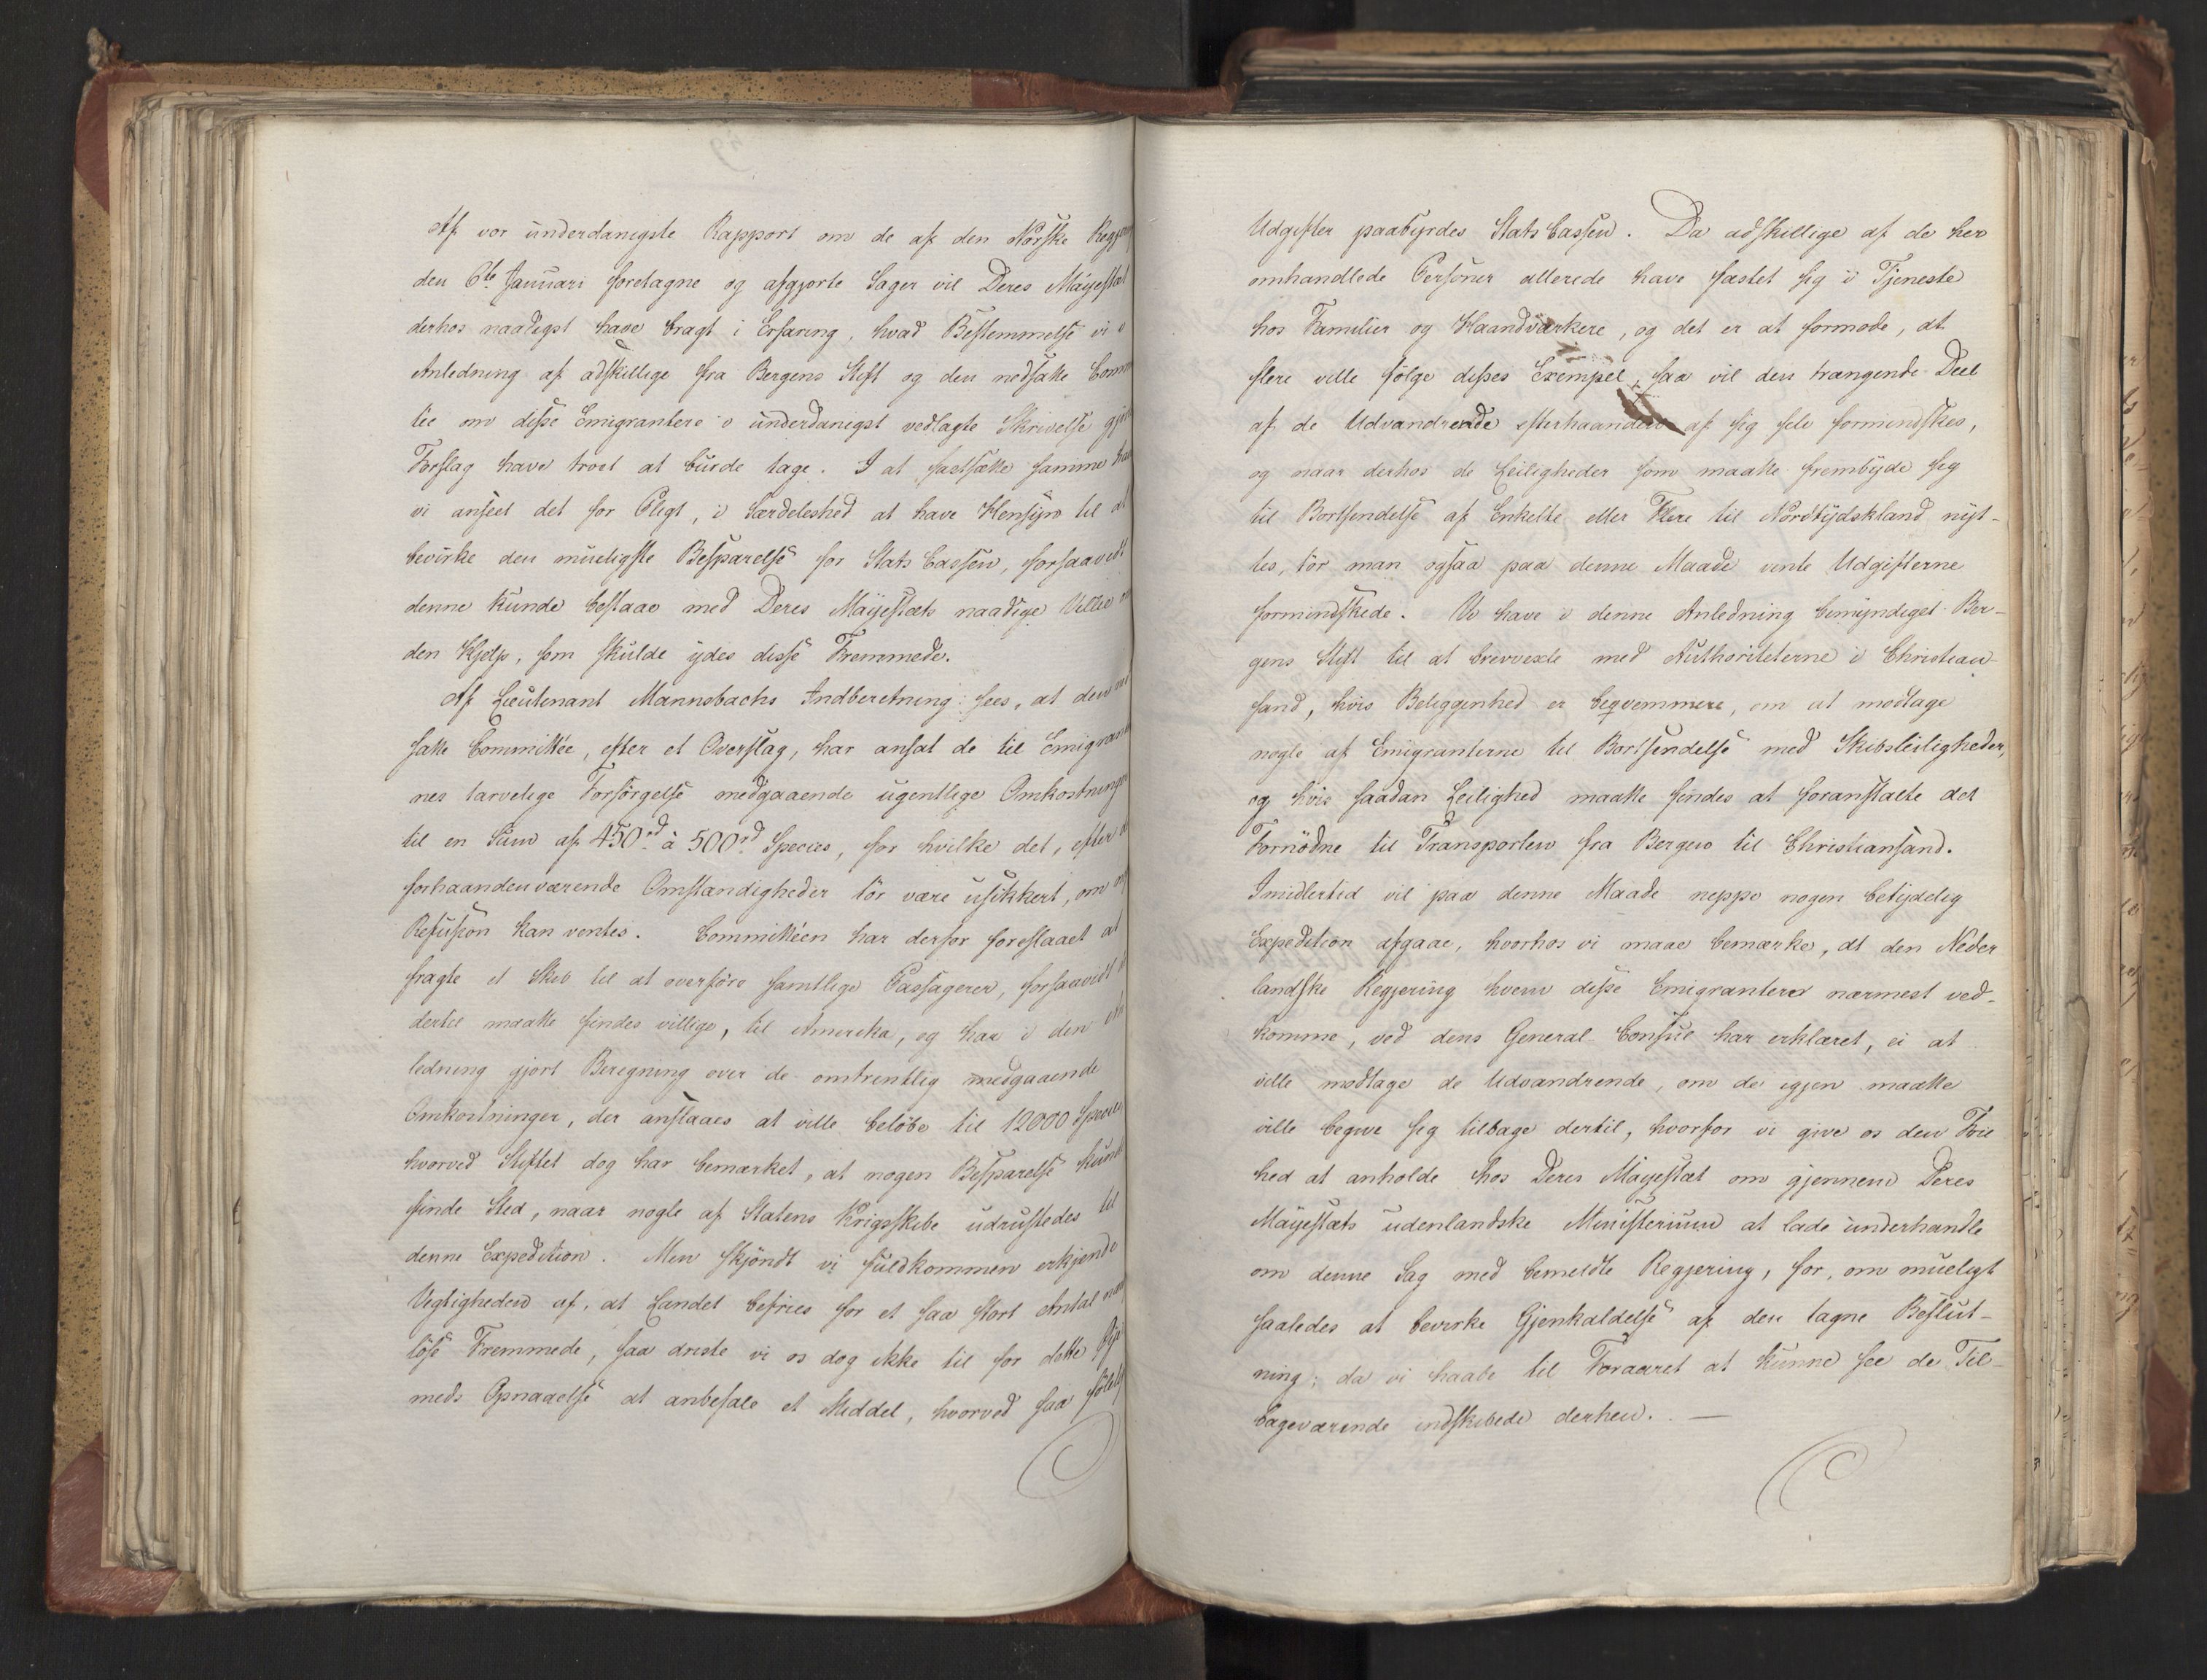 Af vor underdanigste Rapport om de af den Norske Regjer
den 6te Januari foretagne og afgjorte Sager vil Deres Mayestæt
derhos naadigst have bragt i Erfaring, hvad Bestemmelse vi i
Anledning af adskillige fra Bergens Stift og den nedsatte Comm
tee om disse Emigrantere i underdanigst vedlagte Skrivelse gjor
Forslag have troet at burde tage. I at fastsætte samme have
vi anseet det for Pligt, i Særdeleshed at have Hensyn til at
bevirke den mueligste Besparelse for Stats Cassen, forsaavidt
denne kunde bestaae med Deres Mayestæts naadige Villie
den Hjelp, som skulde ydes disse Fremmede.
Af Lieutenant Mannsbachs Indberetning sees, at den ned
satte Committée, efter et Overslag, har ansat de til Emigran
nes tarvelige Forsörgelse medgaaende ugentlige Omkostninger
til en Sum af 450rd à 500rd Species, for hvilke det, efter
forhaandenværende Omstændigheder tör være usikkert, om
Refusion kan ventes. Committéen har derfor foreslaaet at
fragte et Skib til at overföre samtlige Passagerer, forsaavidt
dertil maatte findes villige, til Amerika, og har i den An
ledning gjort Beregning over de omtrentlig medgaaende
Omkostninger, der anslaaes at ville belöbe til 12000 Species
hvorved Stiftet dog har bemærket, at nogen Besparelse kunde
finde Sted, naar nogle af Statens Krigsskibe udrustedes til
denne Expedition. Men skjöndt vi fuldkommen erkjende
Vigtigheden af, at Landet befries for et saa stort Antal
löse Fremmede, saa driste vi os dog ikke til for dette Öje
meds Opnaaelse at anbefale et Middel, hvorved saa fölelige
Udgifter paabyrdes Stats Cassen. Da adskillige af de her
omhandlede Personer allerede have fæstet sig i Tjeneste
hos Familier og Haandværkere, og det er at formode, at
flere ville fölge disses Exempel, saa vil den trængende Deel
af de Udvandrende efterhaanden af sig selv formindskes,
og naar derhos de Leiligheder som maatte frembyde sig
til Bortsendelse af Enkelte eller Flere til Nordtydskland nyt-
tes, tör man ogsaa paa denne Maade vente Udgifterne
formindskede. Vi have i denne Anledning bemyndiget Ber-
gens Stift til at brevvexle med Authoriteterne i Christian-
sand, hvis Beliggenhed er beqvemmere, om at modtage
nogle af Emigranterne til Bortsendelse med Skibsleiligheder,
og hvis saadan Leilighed maatte findes at foranstalte det
Fornödne til Transporten fra Bergen til Christiansand.
Imidlertid vil paa denne Maade neppe nogen betydelig
Expedition afgaae, hvorhos vi maae bemærke, at den Neder
landske Regjering hvem disse Emigranterer nærmest ved-
komme, ved dens General Consul har erklæret, ei at
ville modtage de Udvandrende, om de igjen maatte
ville begive sig tilbage dertil, hvorfor vi give os den Frie
hed at anholde hos Deres Mayestæt om gjennem Deres
Mayestæts udenlandske Ministerium at lade underhandle
om denne Sag med bemeldte Regjering, for, om mueligt
saaledes at bevirke Gjenkaldelse af den tagne Beslut-
ning; da vi haabe til Foraaret at kunne see de Til-
bageværende indskibede derhen. —